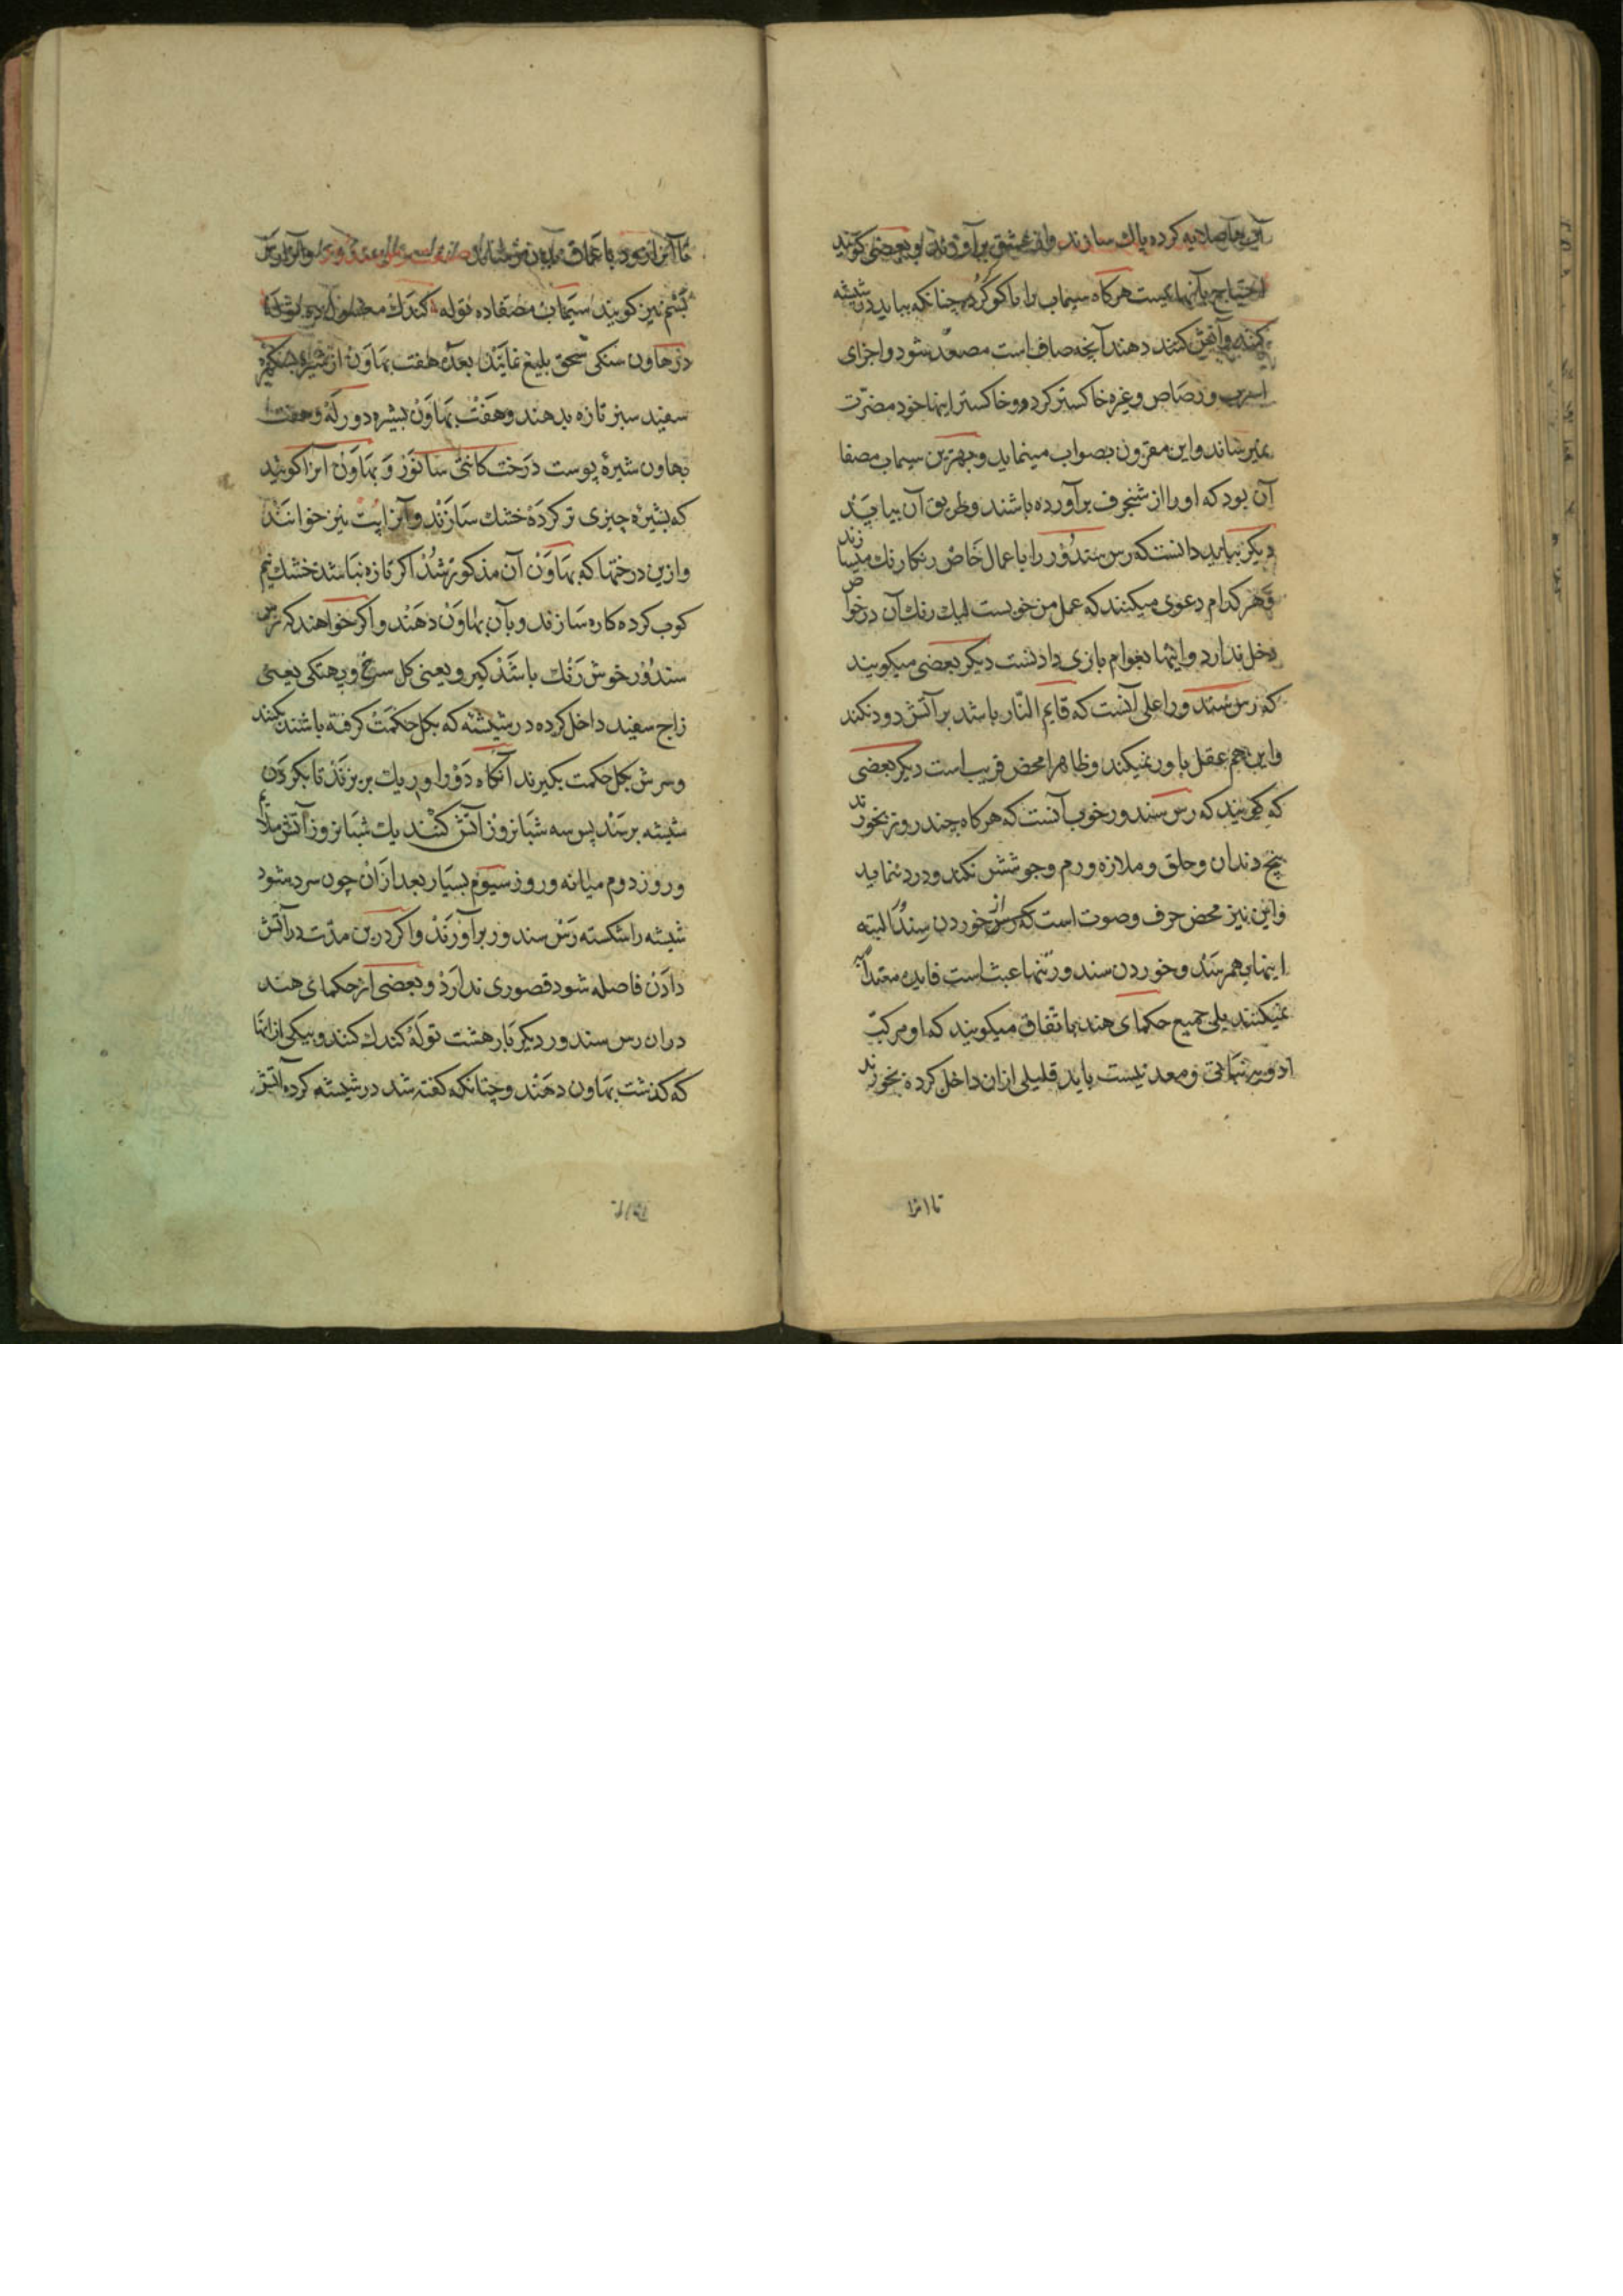 کرده پاک سازند و بعضی کویند
احتیاج بآنها نیست هرکاه سیماب را با کوکرد چنانکه بباید در شیشه
کنند دهند آنچه صاف است مصعد شود و اجزای
اسرب و رصاص و غیره خاکستر کردد و خاکستر اینها خود مضرت
نمیرساند و این مقرون بصواب مینماید و بهترین سیماب مصفا
آن بود که او را از شنجرف برآورده باشند و طریق آن بیابید
دیکر بباید دانست که رس سندور را باعمال خاص رنکارنک میسازند
و هر کدام دعوی میکنند که عمل من خوبست لیک رنک آن در خواص
دخل ندارد و اینها بعوام بازی دادنست دیکر بعضی میکویند
که رس سندور اعلی آنست که قایم النار باشد بر آتش دود نکند
و این هم عقل باور نمیکند و ظاهرا محض فریب است دیکر بعضی
که کویند که رس سندور خوب آنست که هرکاه چند روز بخورند
بیخ دندان و حلق و ملازه ورم و جوشش نکند و درد ننماید
و این نیز محض حرف و صوت است که از خوردن رس سندور البته
اینها بهم رسد و خوردن سندور تنها عبث است فایده معتدابه
نمیکنند بلی جمیع حکمای هند باتفاق میکویند که او مرکب
ادویه نباتی و معدنیست باید قلیلی ازان داخل کرده بخورند
تا اثرا
تا آنرا
نیز کویند سیماب مصفا ده توله کندک
در هاون سنکی سحق بلیغ نمایند بعده هفت بهاون از شیره
سفید سبز تازه بدهند و هفت بهاون بشیره دورکه و هفت
بهاون شیرهٔ پوست درخت کانتی سانور و بهاون آنرا کویند
که بشیرهٔ چیزی تر کرده خشک سازند و آنرا پت نیز خوانند
و ازین درختها که بهاون آن مذکور شد اکر تازه نباشد خشک نیم
کوب کرده کاره سازند و بآن بهاون دهند و اکر خواهند که رس
سندور خوش رنک باشد کیرو یعنی کل سرخ و پهتکی یعنی
زاج سفید داخل کرده در شیشه که بکل حکمت کرفته باشند بکنند
و سرش بکل حکمت بکیرند آنکاه دور او ریک بریزند تا بکردن
شیشه برسند پس سه شبانروز آتش کنند یک شبانروز آتش ملایم
و روز دوم میانه و روز سیوم بسیار بعد ازان چون سرد شود
شیشه را شکسته رس سندور برآورند و اکر درین مدت در آتش
دادن فاصله شود قصوری ندارد و بعضی از حکمای هند
دران رس سندور دیکر بار هشت توله کندک کنند و بیکی از انها
که کذشت بهاون دهند و چنانکه کفته شد در شیشه کرده آتش